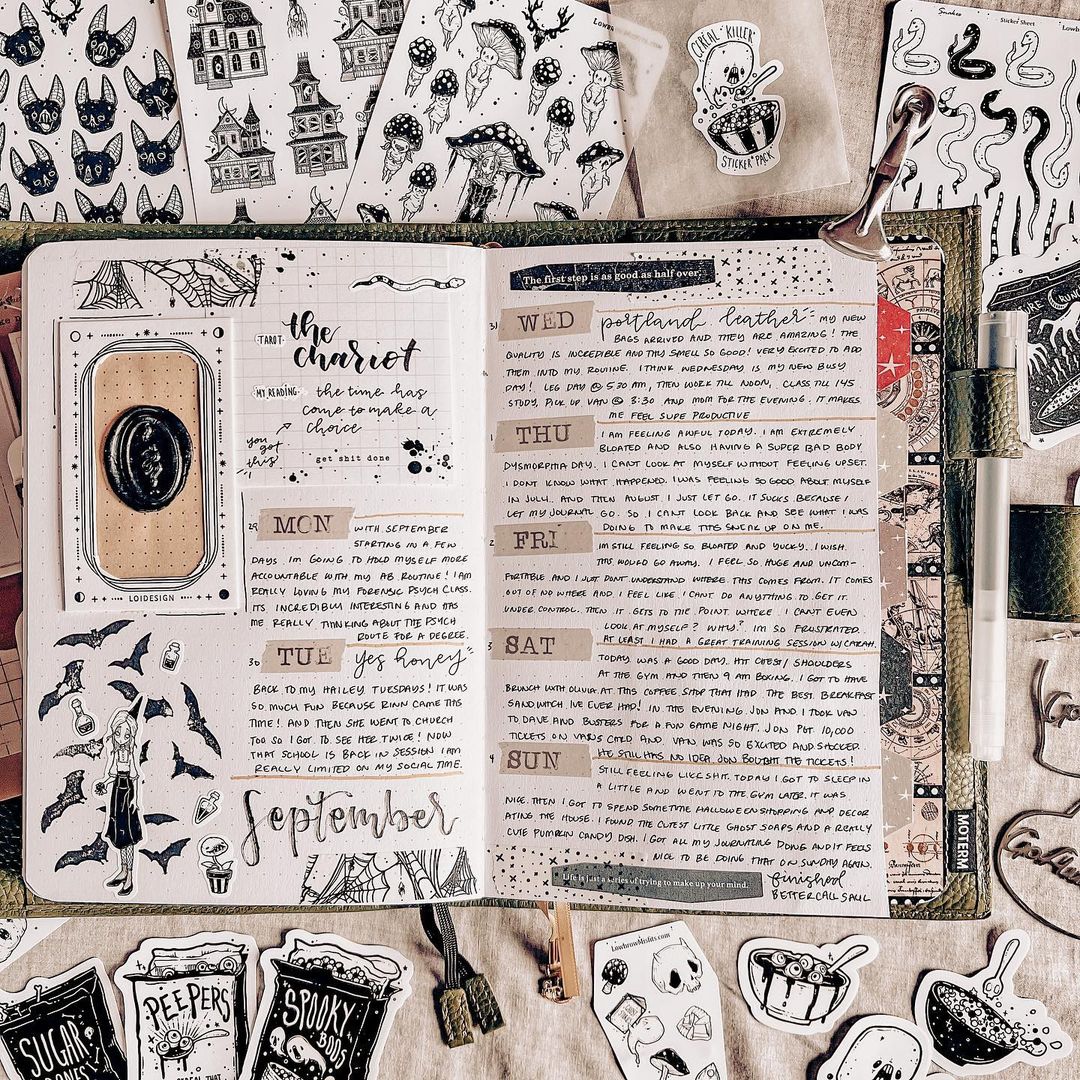 Lowbrow
CEREAL KILLER
STICKER PACK
Snakes
Sticker Sheet
TAROT
the
chariot
MY READING
the time has
come to make a
choice
you
got
this!
get shit done
LOIDESIGN
29
MON
WITH SEPTEMBER
STARTING IN A FEW
DAYS IM GOING TO HOLD MYSELF MORE
ACCOUNTABLE WITH MY AB ROUTINE! I AM
REALLY LOVING MY FORENSIC PSYCH CLASS.
ITS INCREDIBLY INTERESTING AND HAS
ME REALLY THINKING ABOUT THE PSYCH
ROUTE FOR A DEGREE.
30
TUE
yes honey
BACK TO MY HAILEY TUESDAYS! IT WAS
SO MUCH FUN BECAUSE RINN CAME THIS
TIME! AND THEN SHE WENT TO CHURCH
TOO SO I GOT TO SEE HER TWICE! NOW
THAT SCHOOL IS BACK IN SESSION I AM
REALLY LIMITED ON MY SOCIAL TIME.
September
The first step is as good as half over.
31
WED
portland leather MY NEW
BAGS ARRIVED AND THEY ARE AMAZING! THE
QUALITY IS INCREDIBLE AND THY SMELL SO GOOD! VERY EXCITED TO ADD
THEM INTO MY ROUINE. I THINK WEDNESDAY IS MY NEW BUSY
DAY! LEG DAY @ 5:30 AM, THEN WORK TILL NOON, CLASS TILL 145
STUDY, PICK UP VAN @ 3:30 AND MOM FOR THE EVENING. IT MAKES
ME FEEL SUPE PRODUCTIVE
1
THU
I AM FEELING AWFUL TODAY. I AM EXTREMELY
BLOATED AND ALSO HAVING A SUPER BAD BODY
DYSMORPHIA DAY. I CANT LOOK AT MYSELF WITHOUT FEELING UPSET.
I DONT KNOW WHAT HAPPENED. I WAS FEELING SO GOOD ABOUT MYSELF
IN JULY. AND THEN AUGUST I JUST LET GO. IT SUCKS BECAUSE I
LET MY JOURNAL GO. SO I CANT LOOK BACK AND SEE WHAT I WAS
DOING TO MAKE THIS SNEAK UP ON ME.
2
FRI
IM STILL FEELING SO BLOATED AND YUCKY. I WISH
THIS WOULD GO AWAY. I FEEL SO HUGE AND UNCOM-
FORTABLE AND I JUST DONT UNDERSTAND WHERE THIS COMES FROM. IT COMES
OUT OF NO WHERE AND I FEEL LIKE I CANT DO ANYTHING TO GET IT
UNDER CONTROL. THEN IT GETS TO THE POINT WHERE I CANT EVEN
LOOK AT MYSELF? WHY? IM SO FRUSTRATED.
AT LEAST I HAD A GREAT TRAINING SESSION W/CARAH.
3
SAT
TODAY WAS A GOOD DAY. HIT CHEST/ SHOULDERS
AT THE GYM AND THEN 9 AM BOXING. I GOT TO HAVE
BRUNCH WITH OLIVIA AT THIS COFFEE SHOP THAT HAD THE BEST BREAKFAST
SANDWITCH IVE EVER HAD! IN THE EVENING JON AND I TOOK VAN
TO DAVE AND BUSTERS FOR A FUN GAME NIGHT. JON PUT 10,000
TICKETS ON VANS CARD AND VAN WAS SO EXCITED AND SHOCKED.
HE STILL HAS NO IDEA JON BOUGHT THE TICKETS!
4
SUN
STILL FEELING LIKE SHIT. TODAY I GOT TO SLEEP IN
A LITTLE AND WENT TO THE GYM LATER. IT WAS
NICE. THEN I GOT TO SPEND SOMETIME HALLOWEEN SHOPPING AND DECOR
ATING THE HOUSE. I FOUND THE CUTEST LITTLE GHOST SOAPS AND A REALLY
CUTE PUMPKIN CANDY DISH. I GOT ALL MY JOURNALING DOING AND IT FEELS
NICE TO BE DOING THAT ON SUNDAY AGAIN.
Life is just a series of trying to make up your mind.
finished
BETTER CALL SAUL
MOTERM
SUGAR
BONES
PEEPERS
CEREAL THAT
SPOOKY
BOOS
LowbrowMisfits.com